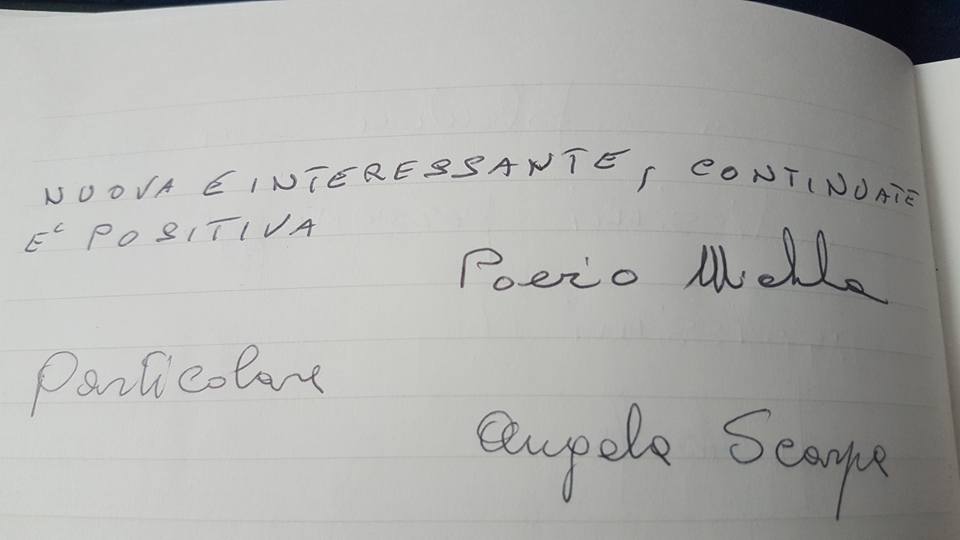 NUOVA E INTERESSANTE, CONTINUATE
E' POSITIVA
Poerio
Particolare
Angela Scarpa